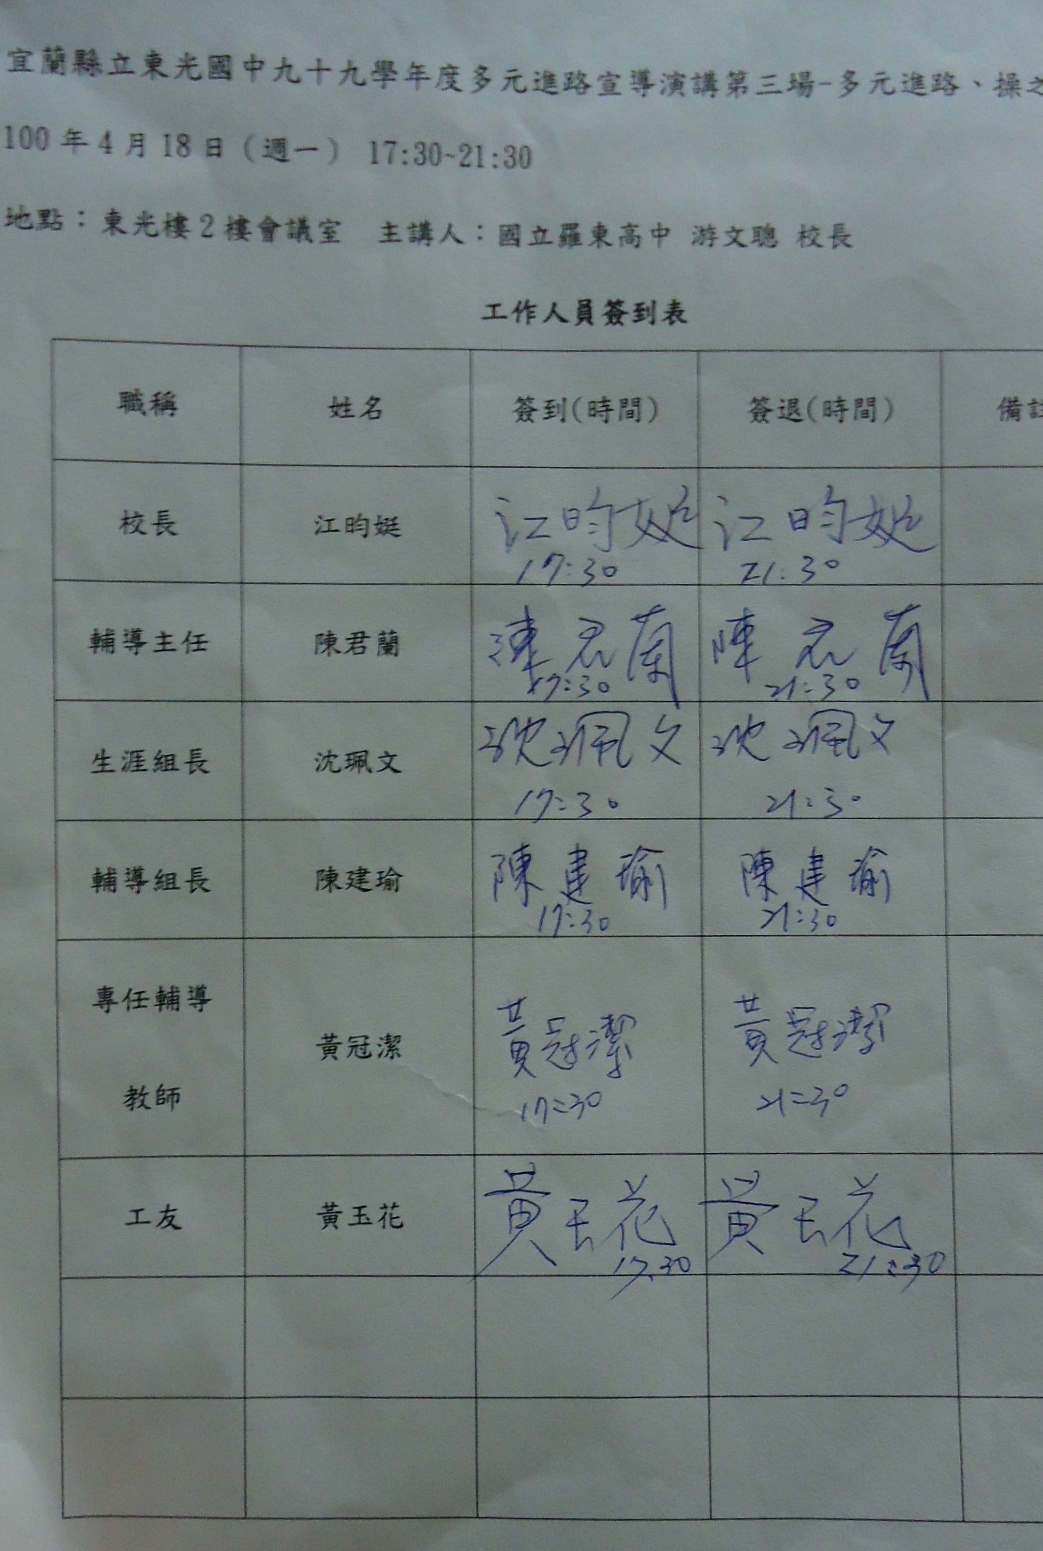 宜蘭縣立東光國中九十九學年度多元進路宣導演講第三場-多元進路、操之
100 年 4 月 18 日（週一） 17:30~21:30
地點：東光樓 2 樓會議室　主講人：國立羅東高中 游文聰 校長
工作人員簽到表
職稱 姓名 簽到(時間) 簽退(時間) 備註
校長 江昀娗 江昀娗 江昀娗
17:30 21:30
輔導主任 陳君蘭 陳君蘭 陳君蘭
17:30 21:30
生涯組長 沈珮文 沈珮文 沈珮文
17:30 21:30
輔導組長 陳建瑜 陳建瑜 陳建瑜
17:30 21:30
專任輔導
教師 黃冠潔 黃冠潔 黃冠潔
17:30 21:30
工友 黃玉花 黃玉花 黃玉花
17:30 21:30